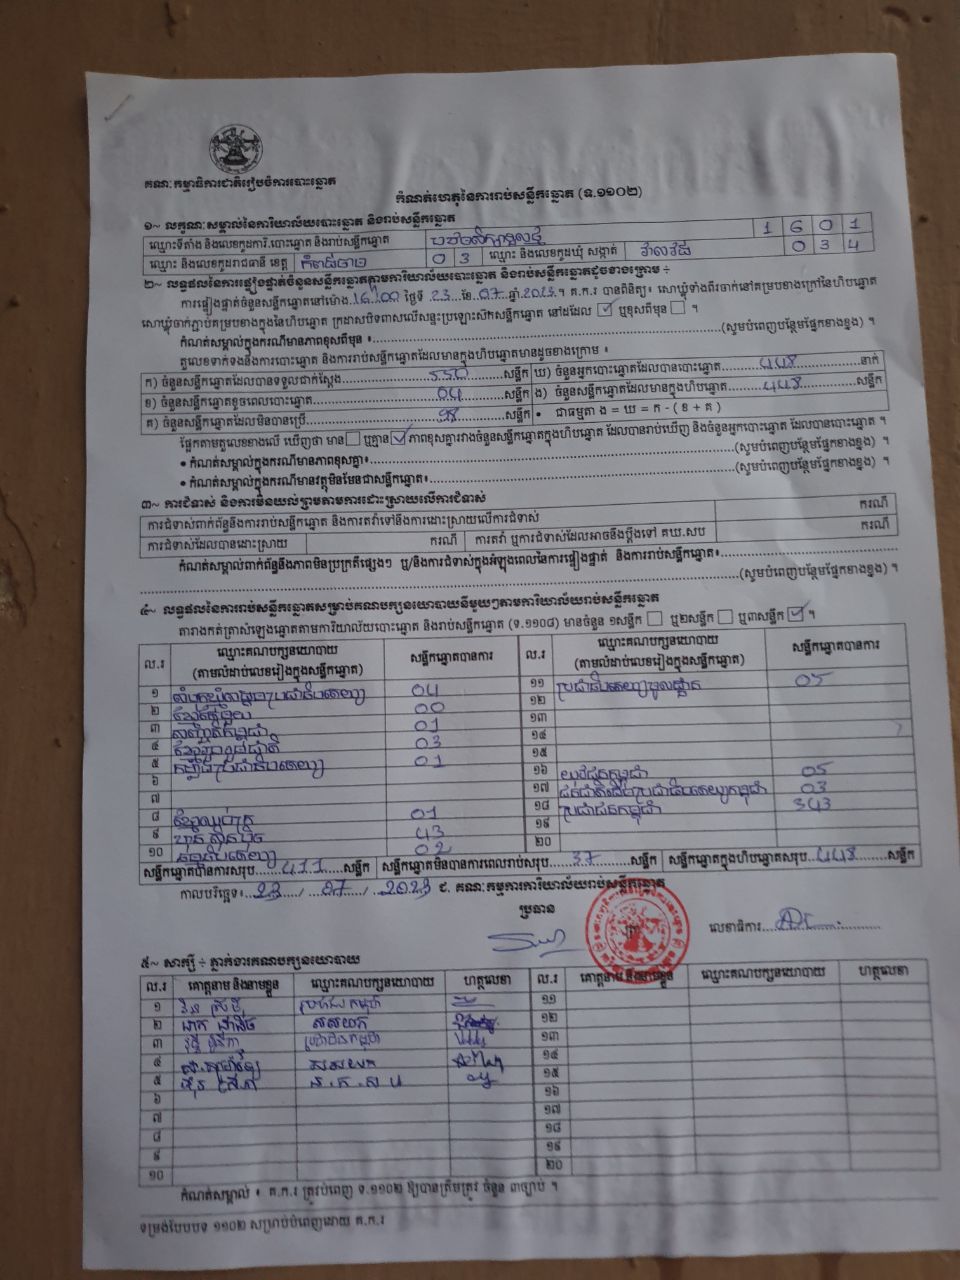 គណៈកម្មាធិការជាតិរៀបចំការបោះឆ្នោត
កំណត់ហេតុនៃការរាប់សន្លឹកឆ្នោត (ទ.១១០២)
១~ លក្ខណៈសម្គាល់នៃការិយាល័យបោះឆ្នោត និងរាប់សន្លឹកឆ្នោត
ឈ្មោះទីតាំង និងលេខកូដការិ.បោះឆ្នោត និងរាប់សន្លឹកឆ្នោត 1 6 0 1
ឈ្មោះ និងលេខកូដរាជធានី ខេត្ត កំពង់ចាម 0 3 ឈ្មោះ និងលេខកូដឃុំ សង្កាត់ 0 3 4
២~ លទ្ធផលនៃការផ្ទៀងផ្ទាត់ចំនួនសន្លឹកឆ្នោតក្នុងការិយាល័យបោះឆ្នោត និងរាប់សន្លឹកឆ្នោតដូចខាងក្រោម ÷
ការផ្ទៀងផ្ទាត់ចំនួនសន្លឹកឆ្នោតនៅម៉ោង 16:00 ថ្ងៃទី 23 ខែ 07 ឆ្នាំ 2023 ។ គ.ក.រ បានពិនិត្យ៖ សោឃ្លុំទាំងពីរចាក់នៅគម្របខាងក្រៅនៃហិបឆ្នោត
សោឃ្លុំចាក់ភ្ជាប់គម្របខាងក្នុងនៃហិបឆ្នោត ក្រដាសបិទពាសលើសន្ទះប្រឡោះសិកសន្លឹកឆ្នោត នៅដដែល ☑ ឬខុសពីមុន ☐ ។
កំណត់សម្គាល់ក្នុងករណីមានភាពខុសពីមុន ៖ (សូមបំពេញបន្ថែមផ្នែកខាងខ្នង) ។
តួលេខទាក់ទងនឹងការបោះឆ្នោត និងការរាប់សន្លឹកឆ្នោតដែលមានក្នុងហិបឆ្នោតមានដូចខាងក្រោម ៖
ក) ចំនួនសន្លឹកឆ្នោតដែលបានទទួលជាក់ស្តែង 550 សន្លឹក ឃ) ចំនួនអ្នកបោះឆ្នោតដែលបានបោះឆ្នោត 448 នាក់
ខ) ចំនួនសន្លឹកឆ្នោតខូចពេលបោះឆ្នោត 04 សន្លឹក ង) ចំនួនសន្លឹកឆ្នោតដែលមានក្នុងហិបឆ្នោត 448 សន្លឹក
គ) ចំនួនសន្លឹកឆ្នោតដែលមិនបានប្រើ 98 សន្លឹក • ជាធម្មតា ង = ឃ = ក - ( ខ + គ )
ផ្អែកតាមតួលេខខាងលើ ឃើញថា មាន ☐ ឬគ្មាន ☑ ភាពខុសគ្នារវាងចំនួនសន្លឹកឆ្នោតក្នុងហិបឆ្នោត ដែលបានរាប់ឃើញ និងចំនួនអ្នកបោះឆ្នោត ដែលបានបោះឆ្នោត ។
• កំណត់សម្គាល់ក្នុងករណីមានភាពខុសគ្នា៖ (សូមបំពេញបន្ថែមផ្នែកខាងខ្នង) ។
• កំណត់សម្គាល់ក្នុងករណីមានវត្ថុមិនមែនជាសន្លឹកឆ្នោត៖ (សូមបំពេញបន្ថែមផ្នែកខាងខ្នង) ។
៣~ ការជំទាស់ និងការមិនយល់ព្រមតាមការដោះស្រាយលើការជំទាស់
ការជំទាស់ពាក់ព័ន្ធនឹងការរាប់សន្លឹកឆ្នោត និងការតវ៉ាទៅនឹងការដោះស្រាយលើការជំទាស់ ករណី
ការជំទាស់ដែលបានដោះស្រាយ ករណី ការតវ៉ា ឬការជំទាស់ដែលអាចនឹងប្តឹងទៅ គឃ.សប ករណី
កំណត់សម្គាល់ពាក់ព័ន្ធនឹងភាពមិនប្រក្រតីផ្សេងៗ ឬ/និងការជំទាស់ក្នុងអំឡុងពេលនៃការផ្ទៀងផ្ទាត់ និងការរាប់សន្លឹកឆ្នោត៖
(សូមបំពេញបន្ថែមផ្នែកខាងខ្នង) ។
៤~ លទ្ធផលនៃការរាប់សន្លឹកឆ្នោតសម្រាប់គណបក្សនយោបាយនីមួយៗតាមការិយាល័យរាប់សន្លឹកឆ្នោត
តារាងកត់ត្រាសំឡេងឆ្នោតតាមការិយាល័យបោះឆ្នោត និងរាប់សន្លឹកឆ្នោត (ទ.១១០៨) មានចំនួន ១សន្លឹក ☐ ឬ២សន្លឹក ☐ ឬ៣សន្លឹក ☑ ។
ល.រ ឈ្មោះគណបក្សនយោបាយ (តាមលំដាប់លេខរៀងក្នុងសន្លឹកឆ្នោត) សន្លឹកឆ្នោតបានការ ល.រ ឈ្មោះគណបក្សនយោបាយ (តាមលំដាប់លេខរៀងក្នុងសន្លឹកឆ្នោត) សន្លឹកឆ្នោតបានការ
១ 04 ១១ 05
២ 00 ១២
៣ 01 ១៣
៤ 03 ១៤
៥ 01 ១៥
៦ ១៦ យុវជនកម្ពុជា 05
៧ ១៧ 03
៨ 01 ១៨ ប្រជាជនកម្ពុជា 343
៩ ហ៊្វុនស៊ិនប៉ិច 43 ១៩
១០ 02 ២០
សន្លឹកឆ្នោតបានការសរុប 411 សន្លឹក សន្លឹកឆ្នោតមិនបានការពេលរាប់សរុប 37 សន្លឹក សន្លឹកឆ្នោតក្នុងហិបឆ្នោតសរុប 448 សន្លឹក
កាលបរិច្ឆេទ៖ 23 / 07 / 2023 ៩. គណៈកម្មការការិយាល័យរាប់សន្លឹកឆ្នោត
ប្រធាន លេខាធិការ
៥~ សាក្សី ÷ ភ្នាក់ងារគណបក្សនយោបាយ
ល.រ គោត្តនាម និងនាមខ្លួន ឈ្មោះគណបក្សនយោបាយ ហត្ថលេខា ល.រ គោត្តនាម និងនាមខ្លួន ឈ្មោះគណបក្សនយោបាយ ហត្ថលេខា
១ ប្រជាជនកម្ពុជា ១១
២ សសយក ១២
៣ ប្រជាជនកម្ពុជា ១៣
៤ សសយក ១៤
៥ ១៥
៦ ១៦
៧ ១៧
៨ ១៨
៩ ១៩
១០ ២០
កំណត់សម្គាល់ ៖ គ.ក.រ ត្រូវបំពេញ ទ.១១០២ ឱ្យបានត្រឹមត្រូវ ចំនួន ៣ច្បាប់ ។
ទម្រង់បែបបទ ១១០២ សម្រាប់បំពេញដោយ គ.ក.រ